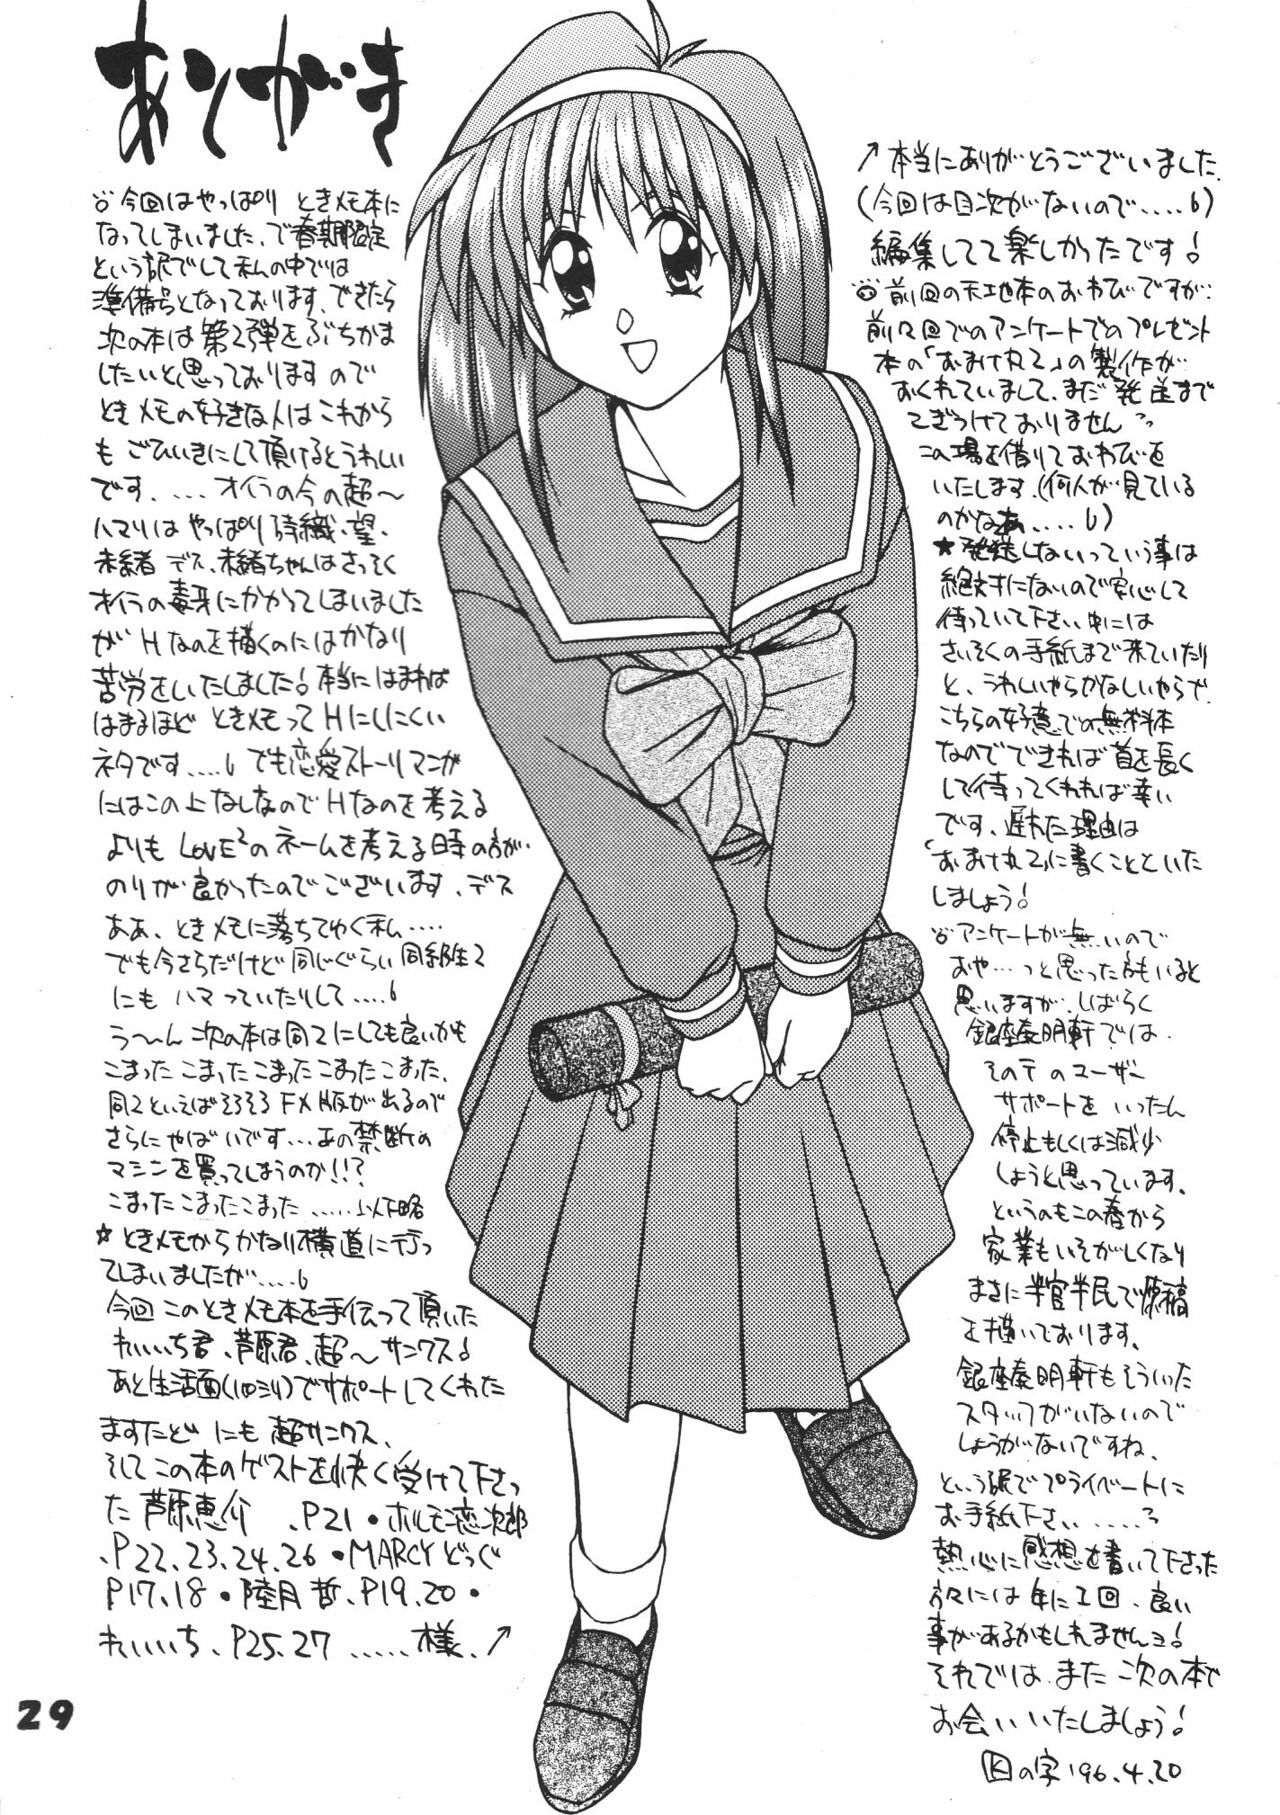 あとがき
今回はやっぱり ときメモ本に
なってしまいました、で春期限定
という訳でして私の中では
準備号となっております、できたら
次の本は第2弾をぶちかま
したいと思っておりますので
ときメモの好きな人はこれから
も ごひいきにして頂けるとうれしい
です、....オイラの今の超〜
ハマリは やっぱり詩織・望・
未緒 デス、未緒ちゃんはさっそく
オイラの毒牙にかかってしまいました
が Hなのを描くのには かなり
苦労をいたしました! 本当に はまれば
はまるほど ときメモってHにしにくい
ネタです....6 でも恋愛ストーリーマンガ
にはこの上なしなので Hなのを考える
よりも LOVE²のネームを考える時の方が
のりが良かったのでございます、デス
ああ、ときメモに落ちてゆく私....
でも今さらだけど 同じぐらい 同級生2
にも ハマっていたりして....6
う〜ん 次の本は同2にしても良いかも
こまった こまった こまった こまった こまった、
同2といえば そろそろ FX版が出るので
さらに やばいです...あの禁断の
マシンを買ってしまうのか!!?
こまった こまった こまった .....以下略
☆ときメモからかなり横道に行っ
てしまいましたが....6
今回このときメモ本を手伝って頂いた
れいいち君、芦原君、超〜サンクス!
あと生活面(  )でサポートしてくれた
ますたどにも 超サンクス、
そして この本のゲストを快く受けて下さっ
た 芦原恵介 、P21・ホルモン恋次郎
、P22.23.24.26・MARCYどっぐ
P17.18・陸月 哲、P19.20・
れいいち、P25.27 .....様、↗
↗本当にありがとうございました
(今回は目次がないので....6)
編集してて楽しかったです!
前回の天地本のおわびですが、
前々回でのアンケートでのプレゼント
本の「おまけ丸2」の製作が
おくれていまして、まだ発送まで
こぎつけておりません
この場を借りておわびを
いたします、(何人が見ている
のかなぁ....6)
★発送しないっていう事は
絶対にないので安心して
待っていて下さい、中には
さいそくの手紙まで来ていたり
と、うれしいやらかなしいやらで、
こちらの好意での無料本
なのでできれば首を長く
して待ってくれれば幸い
です、遅れた理由は
「おまけ丸2」に書くことといた
しましょう!
アンケートが無いので
おや...っと思った方もいると
思いますが、しばらく
銀座泰明軒では
その テのユーザー
サポートを いったん
停止もしくは減少
しようと思っています、
というのもこの春から
家業もいそがしくなり
まさに半官半民で原稿
を描いております。
銀座泰明軒もそういった
スタッフがいないので
しょうがないですね、
という訳でプライベートに
お手紙下さい.....
熱心に感想を書いて下さった
方々には 年に1回、良い
事があるかもしれませんヨ!
それでは、また 次の本で
お会いいたしましょう!
の字 '96.4.20
29